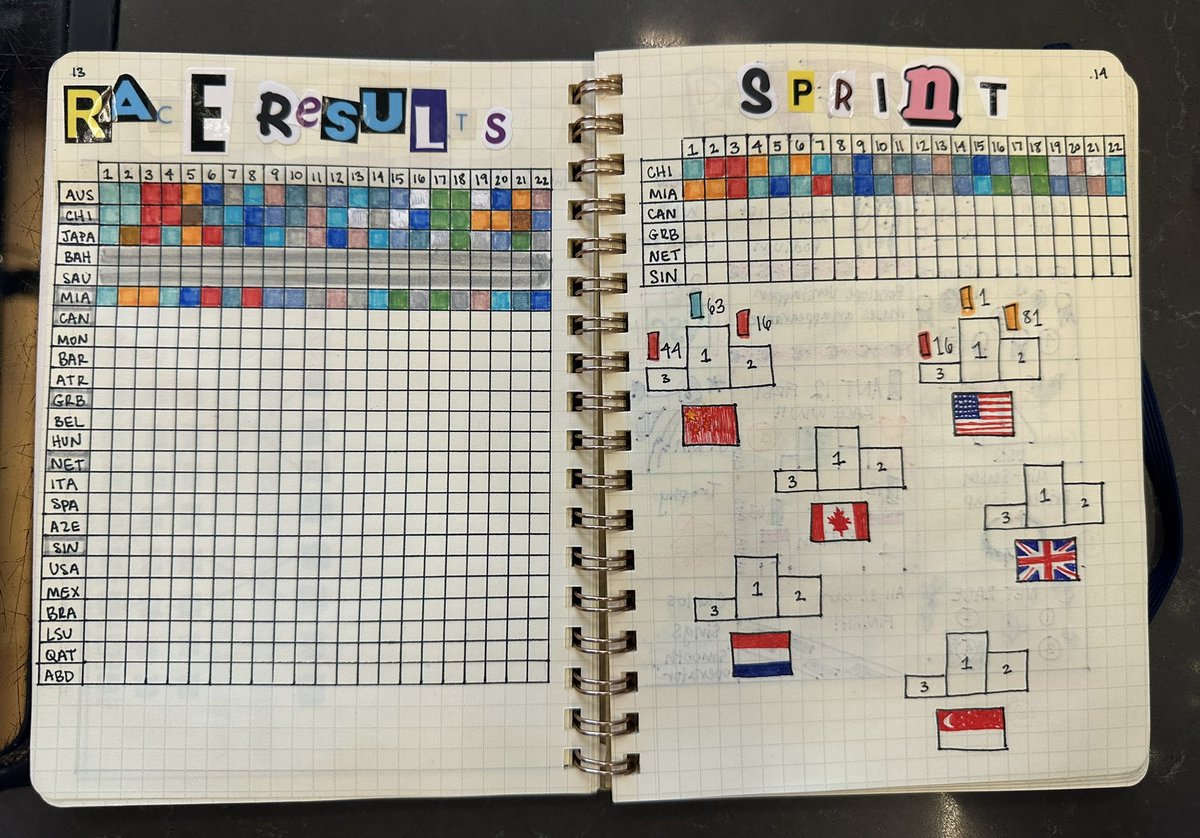 13
RACE RESULTS
1 2 3 4 5 6 7 8 9 10 11 12 13 14 15 16 17 18 19 20 21 22
AUS
CHI
JAPA
BAH
SAU
MIA
CAN
MON
BAR
ATR
GRB
BEL
HUN
NET
ITA
SPA
AZE
SIN
USA
MEX
BRA
LSU
QAT
ABD
14
SPRINT
1 2 3 4 5 6 7 8 9 10 11 12 13 14 15 16 17 18 19 20 21 22
CHI
MIA
CAN
GRB
NET
SIN
63
16
44
1
2
3
1
81
16
1
2
3
1
2
3
1
2
3
1
2
3
1
2
3